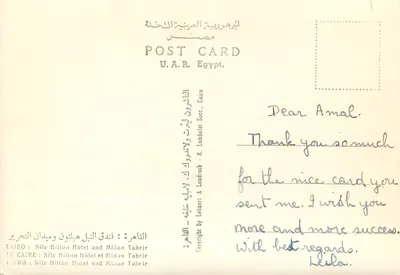 الجمهورية العربية المتحدة
مصر
POST CARD
U. A. R. Egypt.
Dear Amal.
Thank you so much
for the nice card you
sent me. I wish you
more and more success.
With best regards.
Leila.
الناشرون لينرت ولاندروك ك. لامبليه خليفته - القاهرة
Copyright by Lehnert & Landrock - K. Lambelet Succ. Cairo
القاهرة : فندق النيل هيلتون وميدان التحرير
CAIRO : Nile Hilton Hotel and Midan Tahrir
LE CAIRE : Nile Hilton Hôtel et Midan Tahrir
KAIRO : Nile Hilton Hotel und Midan Tahrir